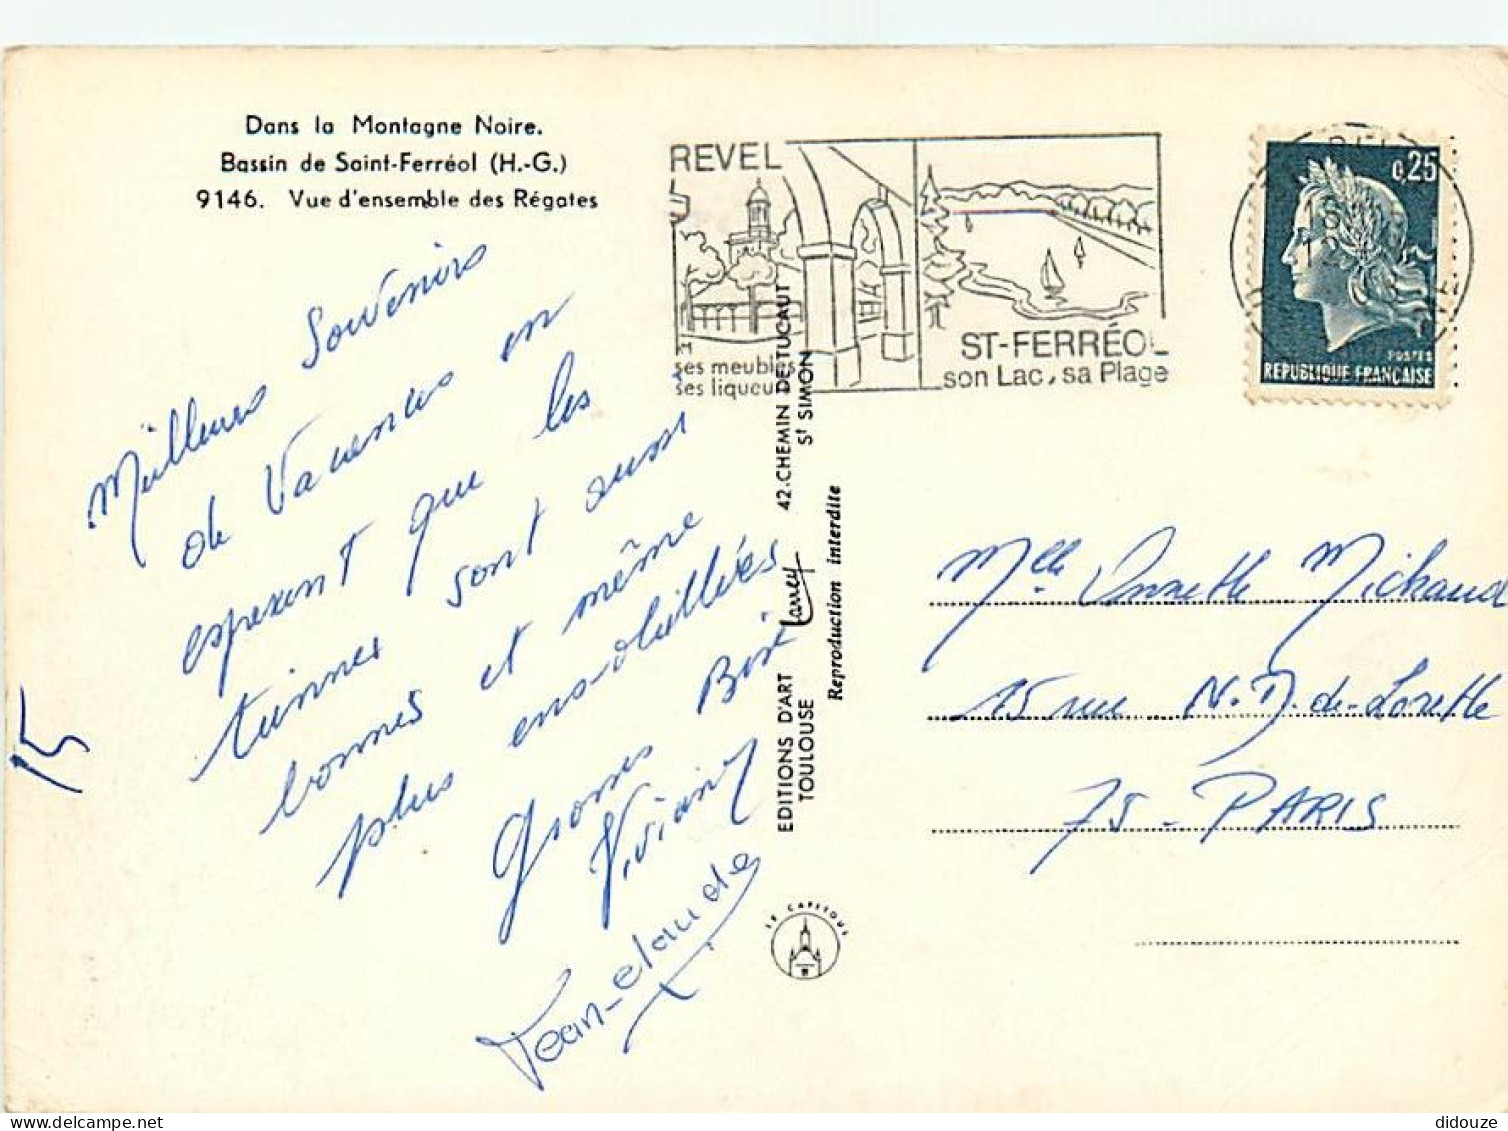 Dans la Montagne Noire.
Bassin de Saint-Ferréol (H.-G.)
9146. Vue d'ensemble des Régates
Meilleurs Souvenirs
de Vacances en
esperent que les
tiennes sont aussi
bonnes et même
plus ensoleillées
Grosses Bise
Viviane
Jean-claude
15
REVEL
ses meubles
ses liqueurs
ST-FERRÉOL
son Lac, sa Plage
0,25
POSTES
REPUBLIQUE FRANÇAISE
EDITIONS D'ART Larrey 42. CHEMIN DE TUCAUT
TOULOUSE St SIMON
Reproduction interdite
LE CAPITOUL
Mlle Michaud
15 rue N.D.-de-Lorette
75 - PARIS
didouze